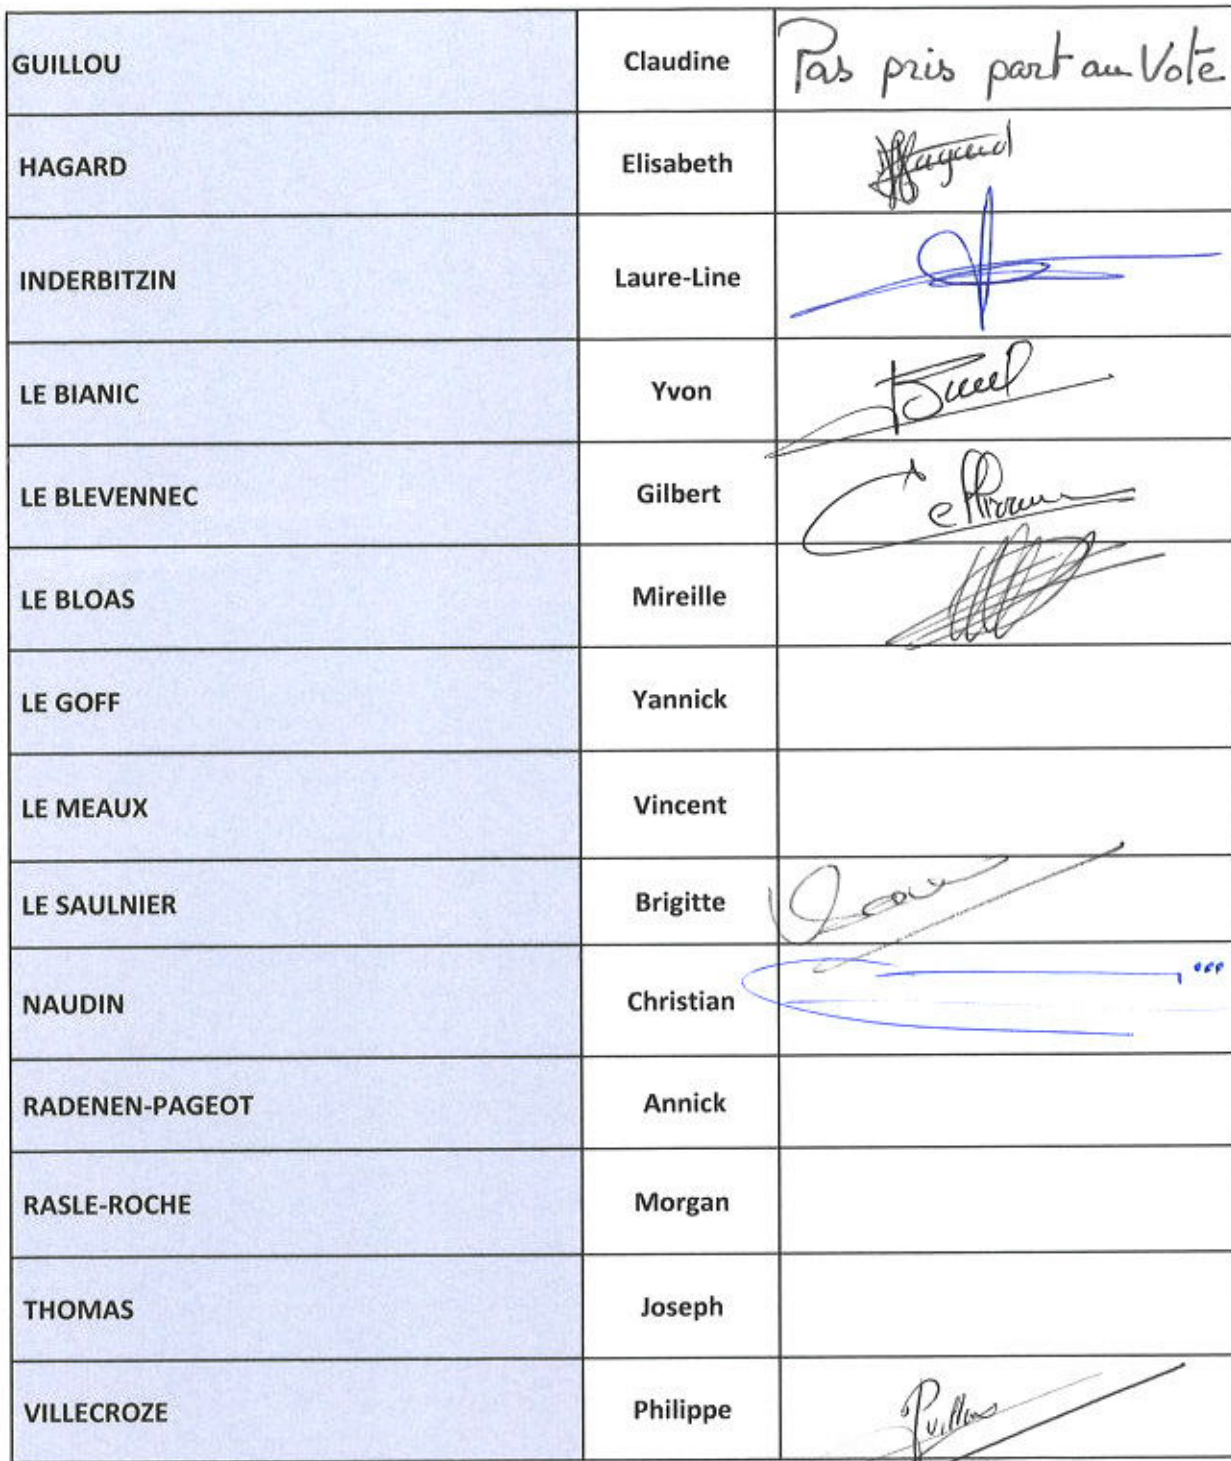 GUILLOU Claudine Pas pris part au Vote
HAGARD Elisabeth
INDERBITZIN Laure-Line
LE BIANIC Yvon
LE BLEVENNEC Gilbert
LE BLOAS Mireille
LE GOFF Yannick
LE MEAUX Vincent
LE SAULNIER Brigitte
NAUDIN Christian
RADENEN-PAGEOT Annick
RASLE-ROCHE Morgan
THOMAS Joseph
VILLECROZE Philippe